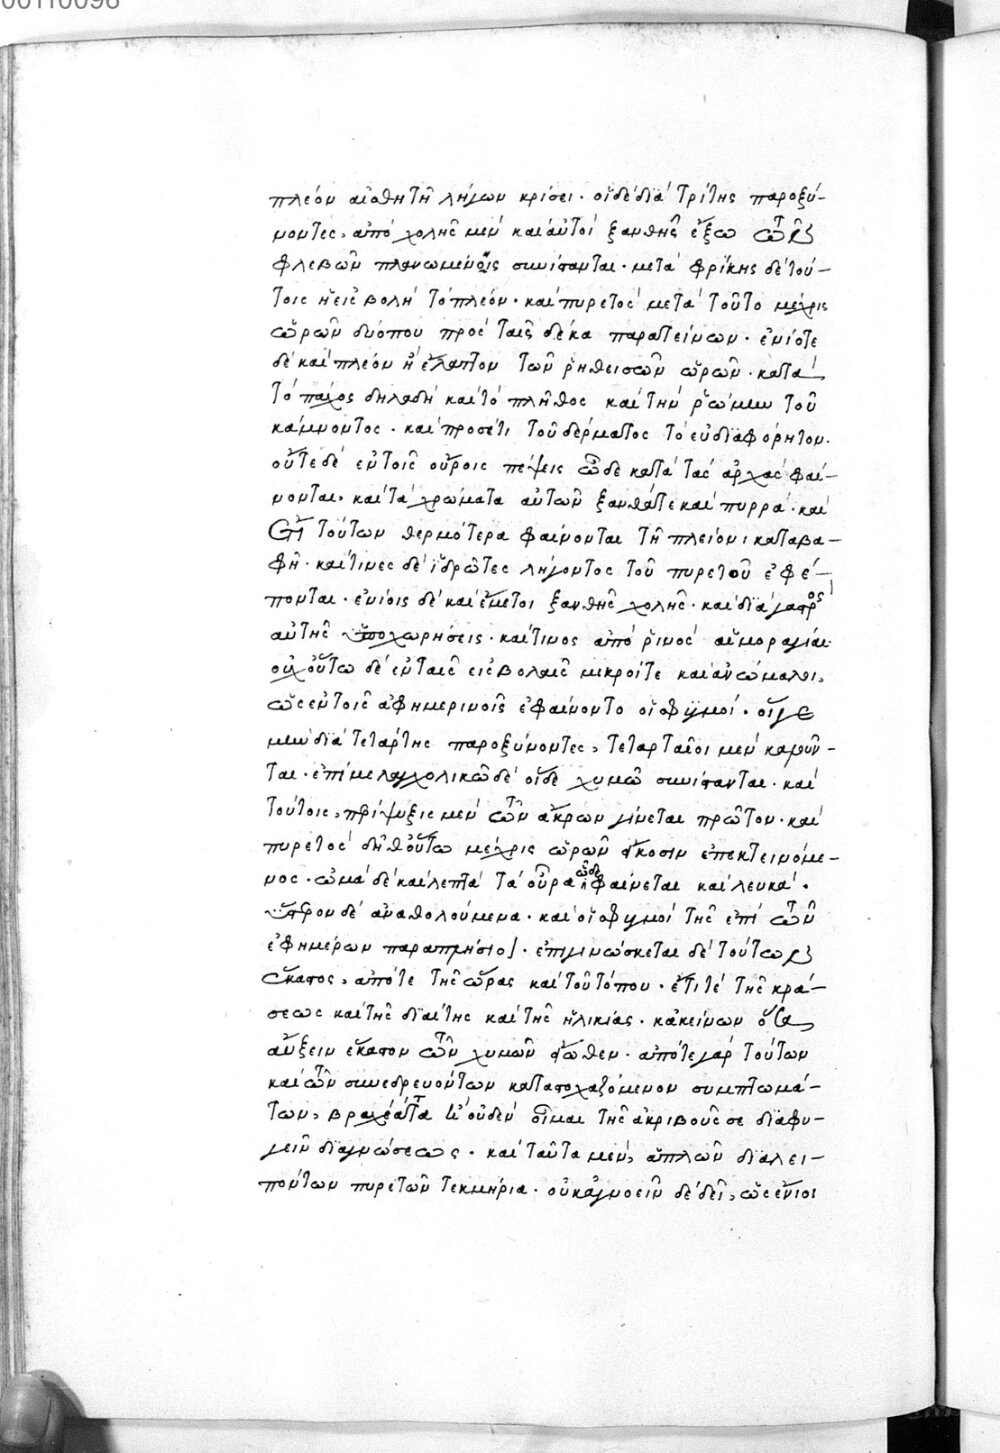 00110096
πλεόν αἰσθητῆ λήγων κρίσει· οἱ δὲ διὰ τρίτης παροξύ-
νοντες, ἀπὸ χολῆς μὲν καὶ αὐτοὶ ξανθῆς ἔξω τῶν
φλεβῶν πλανωμένης συνίστανται· μετὰ φρίκης δὲ τού-
τοις ἡ εἰσβολὴ τὸ πλέον· καὶ πυρετὸς μετὰ τοῦτο μέχρις
ὡρῶν δυόπου πρὸς ταῖς δέκα παρατείνων· ἐνίοτε
δὲ καὶ πλέον ἢ ἔλαττον τῶν ῥηθεισῶν ὡρῶν· κατὰ
τὸ πάχος δηλαδὴ καὶ τὸ πλῆθος καὶ τὴν ῥώμην τοῦ
κάμνοντος· καὶ προσέτι τοῦ δέρματος τὸ εὐδιαφόρητον.
οὔτε δὲ ἐν τοῖς οὔροις πέψις ὧδε κατὰ τὰς ἀρχὰς φαί-
νονται· καὶ τὰ χρώματα αὐτῶν ξανθά τε καὶ πυρρά· καὶ
ἔτι τούτων θερμότερα φαίνονται τῆ πλείονι καταβα-
φῆ· καί τινες δὲ ἱδρῶτες λήγοντος τοῦ πυρετοῦ ἐφέ-
πονται· ἐνίοις δὲ καὶ ἔμετοι ξανθῆς χολῆς· καὶ διὰ γαστρὸς
αὐτῆς ὑποχωρήσεις· καί τινος ἀπὸ ῥινὸς αἱμορραγίαι
οὐχ οὕτω δὲ ἐν ταῖς εἰσβολαῖς μικροί τε καὶ ἀνώμαλοι,
ὡς ἐν τοῖς ἀφημερινοῖς ἐφαίνοντο οἱ σφυγμοί· οἵ γε
μὴν διὰ τετάρτης παροξύνοντες, τεταρταῖοι μὲν καλοῦν-
ται· ἐπὶ μελαγχολικῶ δὲ οἵδε χυμῶ συνίστανται· καὶ
τούτοις, περίψυξις μὲν τῶν ἄκρων γίνεται πρῶτον· καὶ
πυρετὸς δηθοὕτω μέχρις ὡρῶν εἴκοσιν ἐπεκτεινόμε-
νος· ὠμὰ δὲ καὶ λεπτὰ τὰ οὖρα ὧδε φαίνεται καὶ λευκά·
ὕστερον δὲ ἀναθολούμενα· καὶ οἱ σφυγμοὶ τῆς ἐπὶ τῶν
ἐφημέρων παραπλήσιοι· ἐπιγινώσκεται δὲ τούτων
ἕκαστος, ἀπό τε τῆς ὥρας καὶ τοῦ τόπου· ἔτι τὲ τῆς κρά-
σεως καὶ τῆς διαίτης καὶ τῆς ἡλικίας· κἀκείνων ὅσα
αὔξειν ἕκαστον τῶν χυμῶν εἴωθεν· ἀπό τε γὰρ τούτων
καὶ τῶν συνεδρευόντων καταστοχαζόμενον συμπτωμά-
των, βραχέα τὰ ἢ οὐδὲν οἶμαι τῆς ἀκριβοῦς σε διαφυ-
γεῖν διαγνώσεως· καὶ ταῦτα μέν, ἁπλῶν διαλει-
πόντων πυρετῶν τεκμήρια· οὐκ ἀγνοεῖν δὲ δεῖ, ὡς ἔνιοι